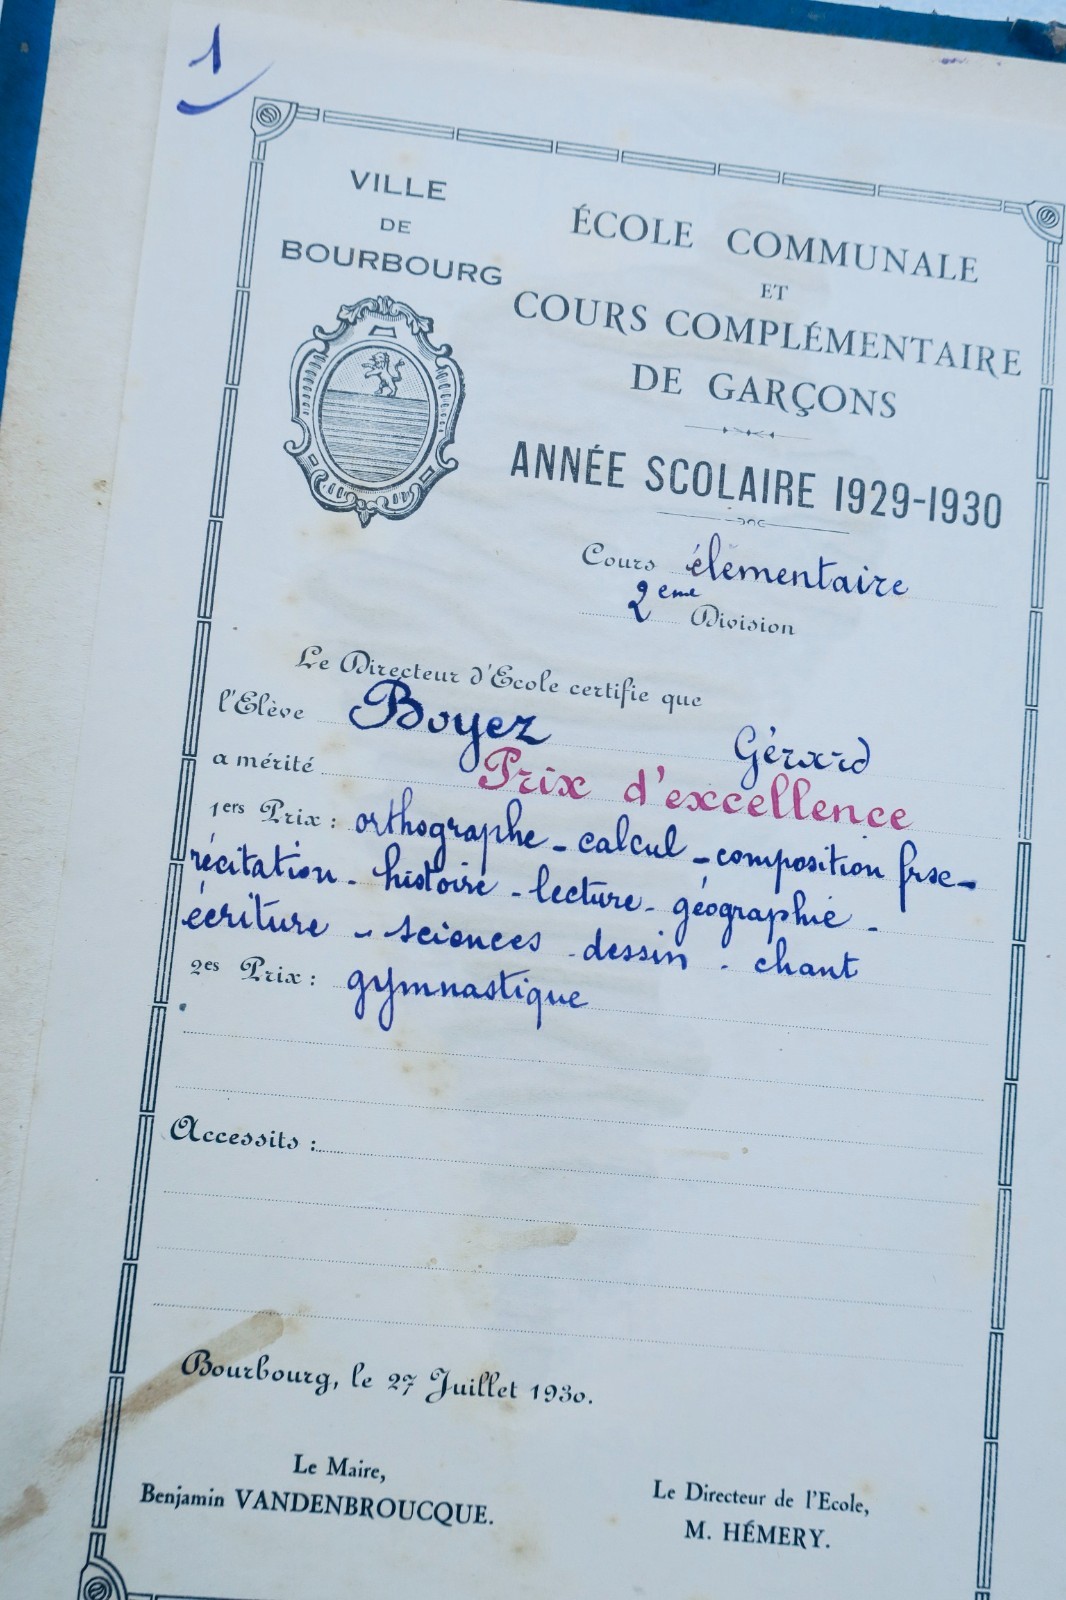 1
VILLE
DE
BOURBOURG
ÉCOLE COMMUNALE
ET
COURS COMPLÉMENTAIRE
DE GARÇONS
ANNÉE SCOLAIRE 1929-1930
Cours élémentaire
2eme Division
Le Directeur d'Ecole certifie que
l'Elève Boyez Gérard
a mérité Prix d'excellence
1ers Prix : orthographe - calcul - composition frse -
récitation - histoire - lecture - géographie -
écriture - sciences - dessin - chant
2es Prix : gymnastique
Accessits :
Bourbourg, le 27 Juillet 1930.
Le Maire,
Benjamin VANDENBROUCQUE.
Le Directeur de l'Ecole,
M. HÉMERY.